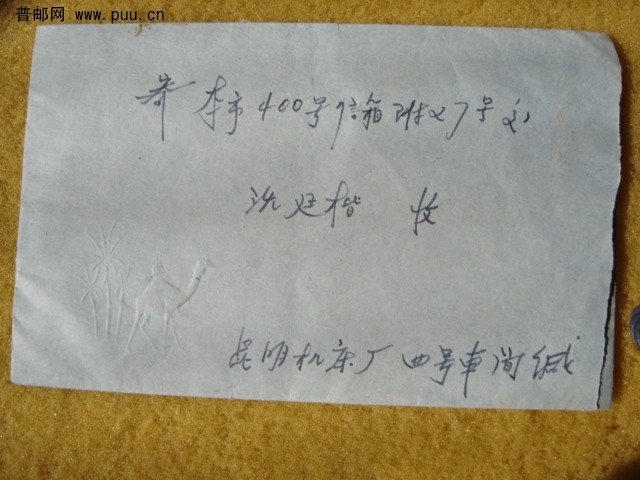 普邮网 www.puu.cn
寄 本市400号信箱附27号交
沈廷楷 收
昆明机床厂四号車间缄